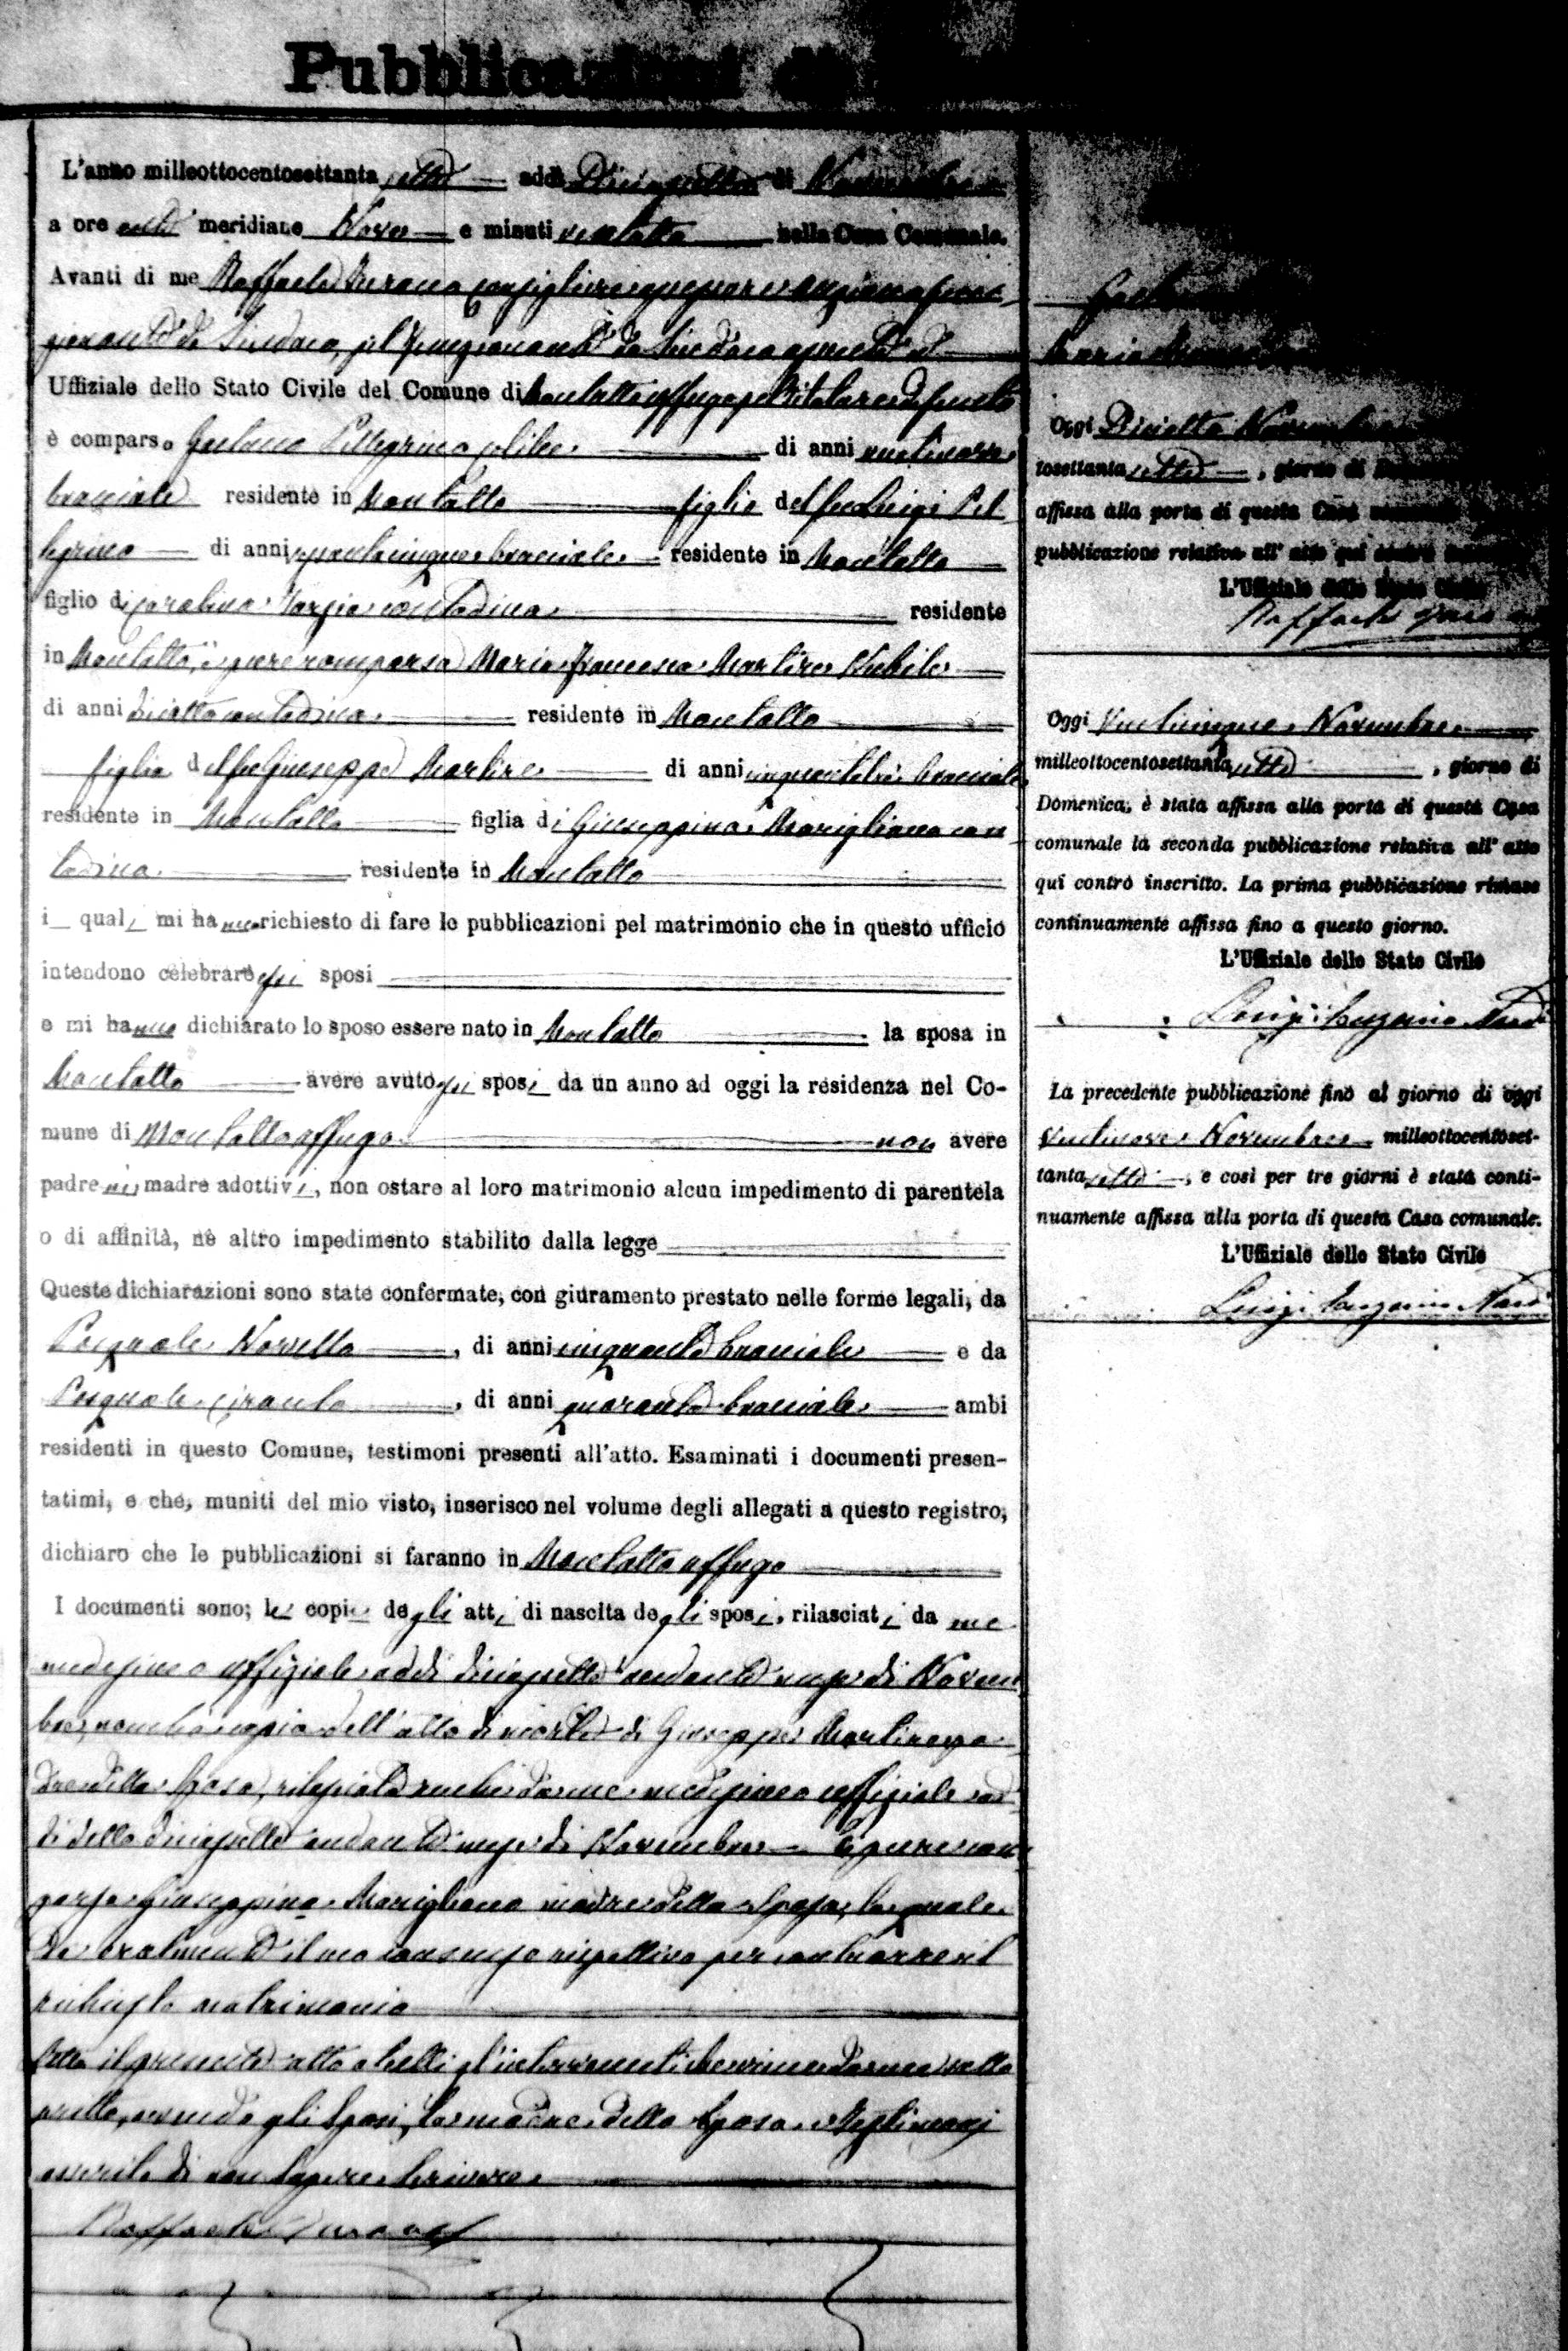 Pubblicazioni di
L'anno milleottocentosettanta sette addì Diciasette di Novembre
a ore anti meridiane Nove e minuti ventotto nella Casa Comunale.
Avanti di me Raffaele consigliere anziano
di Sindaco, pel funzionante da Sindaco assente ed
Uffiziale dello Stato Civile del Comune di Montalto Uffugo pel titolare defunto
è comparso Gaetano Pellegrino celibe di anni ventinove
bracciale residente in Montalto figlio del fu Luigi Pel
legrino di anni bracciale residente in Montalto
figlio di Carolina contadina residente
in Montalto, è pure comparsa Maria Francesca Martire Nubile
di anni diciotto contadina residente in Montalto
figlia del fu Giuseppe Martire di anni cinquantatre bracciale
residente in Montalto figlia di Giuseppina Marigliano con
tadina residente in Montalto
i quali mi hanno richiesto di fare le pubblicazioni pel matrimonio che in questo ufficio
intendono celebrare essi sposi
e mi hanno dichiarato lo sposo essere nato in Montalto la sposa in
Montalto avere avuto essi sposi da un anno ad oggi la residenza nel Co-
mune di Montalto uffugo non avere
padre nè madre adottivi, non ostare al loro matrimonio alcun impedimento di parentela
o di affinità, nè altro impedimento stabilito dalla legge
Queste dichiarazioni sono state confermate, con giuramento prestato nelle forme legali, da
Pasquale Novello, di anni cinquanta bracciale e da
Pasquale, di anni quaranta bracciale ambi
residenti in questo Comune, testimoni presenti all'atto. Esaminati i documenti presen-
tatimi, e che, muniti del mio visto, inserisco nel volume degli allegati a questo registro,
dichiaro che le pubblicazioni si faranno in Montalto uffugo
I documenti sono; le copie degli atti di nascita degli sposi, rilasciati da me
medesimo uffiziale addì diciasette andante mese di Novem
bre, nonchè copia dell'atto di morte di Giuseppe Martire pa
dre della Sposa, rilasciata anche da me medesimo uffiziale ad
dì detto diciasette andante mese di Novembre È pure com
parsa Giuseppina Marigliano madre della Sposa, la quale
dà oralmente il suo consenso rispettivo per contrarre il
richiesto matrimonio
Letto il presente atto a tutti gl'intervenuti che viene da me sotto
scritto, avendo gli Sposi, la madre della Sposa e testimoni
asserito di non sapere scrivere
Raffaele
Maria
Oggi Diciotto Novembre
tosettanta sette, giorno di
affissa alla porta di questa Casa
pubblicazione relativa all'atto qui contro
L'Uffiziale dello Stato Civile
Raffaele
Oggi Venticinque Novembre
milleottocentosettanta sette, giorno di
Domenica, è stata affissa alla porta di questa Casa
comunale la seconda pubblicazione relativa all'atto
qui contro inscritto. La prima pubblicazione rimase
continuamente affissa fino a questo giorno.
L'Uffiziale dello Stato Civile
Luigi
La precedente pubblicazione fino al giorno di oggi
Ventinove Novembre milleottocentoset-
tanta sette, e così per tre giorni è stata conti-
nuamente affissa alla porta di questa Casa comunale.
L'Uffiziale dello Stato Civile
Luigi